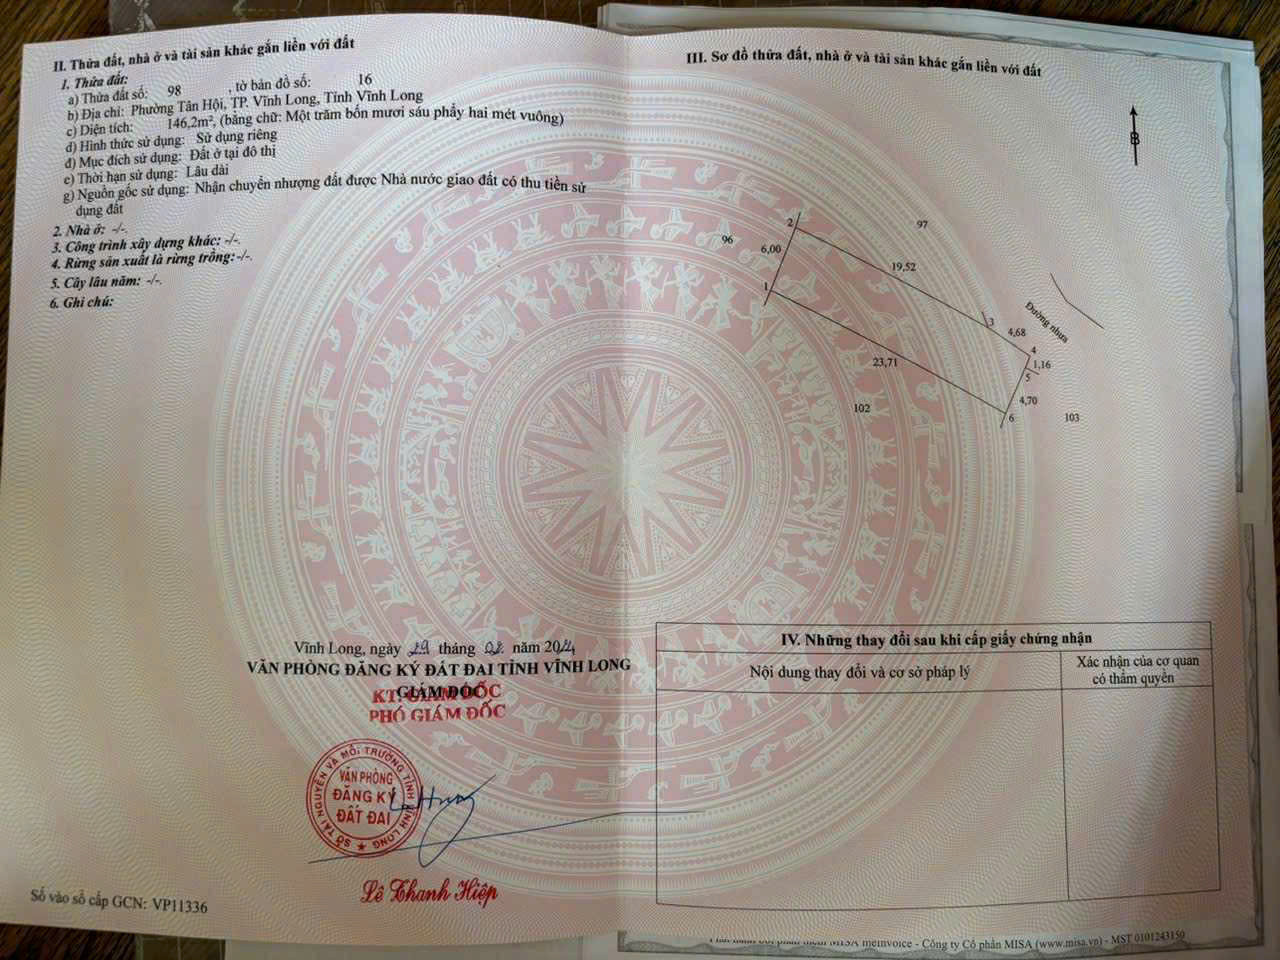 II. Thửa đất, nhà ở và tài sản khác gắn liền với đất
1. Thửa đất:
a) Thửa đất số: 98 , tờ bản đồ số: 16
b) Địa chỉ: Phường Tân Hội, TP. Vĩnh Long, Tỉnh Vĩnh Long
c) Diện tích: 146,2m², (bằng chữ: Một trăm bốn mươi sáu phẩy hai mét vuông)
d) Hình thức sử dụng: Sử dụng riêng
đ) Mục đích sử dụng: Đất ở tại đô thị
e) Thời hạn sử dụng: Lâu dài
g) Nguồn gốc sử dụng: Nhận chuyển nhượng đất được Nhà nước giao đất có thu tiền sử
dụng đất
2. Nhà ở: -/-.
3. Công trình xây dựng khác: -/-.
4. Rừng sản xuất là rừng trồng:-/-.
5. Cây lâu năm: -/-.
6. Ghi chú:
Vĩnh Long, ngày 29 tháng 02 năm 2024
VĂN PHÒNG ĐĂNG KÝ ĐẤT ĐAI TỈNH VĨNH LONG
GIÁM ĐỐC
KT. GIÁM ĐỐC
PHÓ GIÁM ĐỐC
SỞ TÀI NGUYÊN VÀ MÔI TRƯỜNG TỈNH VĨNH LONG
VĂN PHÒNG
ĐĂNG KÝ
ĐẤT ĐAI
Lê Thanh Hiệp
Số vào sổ cấp GCN: VP11336
III. Sơ đồ thửa đất, nhà ở và tài sản khác gắn liền với đất
B
2
97
96
6,00
19,52
1
Đường nhựa
3
4,68
4
23,71
1,16
5
4,70
102
6
103
IV. Những thay đổi sau khi cấp giấy chứng nhận
Nội dung thay đổi và cơ sở pháp lý
Xác nhận của cơ quan
có thẩm quyền
MISA meInvoice - Công ty Cổ phần MISA (www.misa.vn) - MST 0101243150